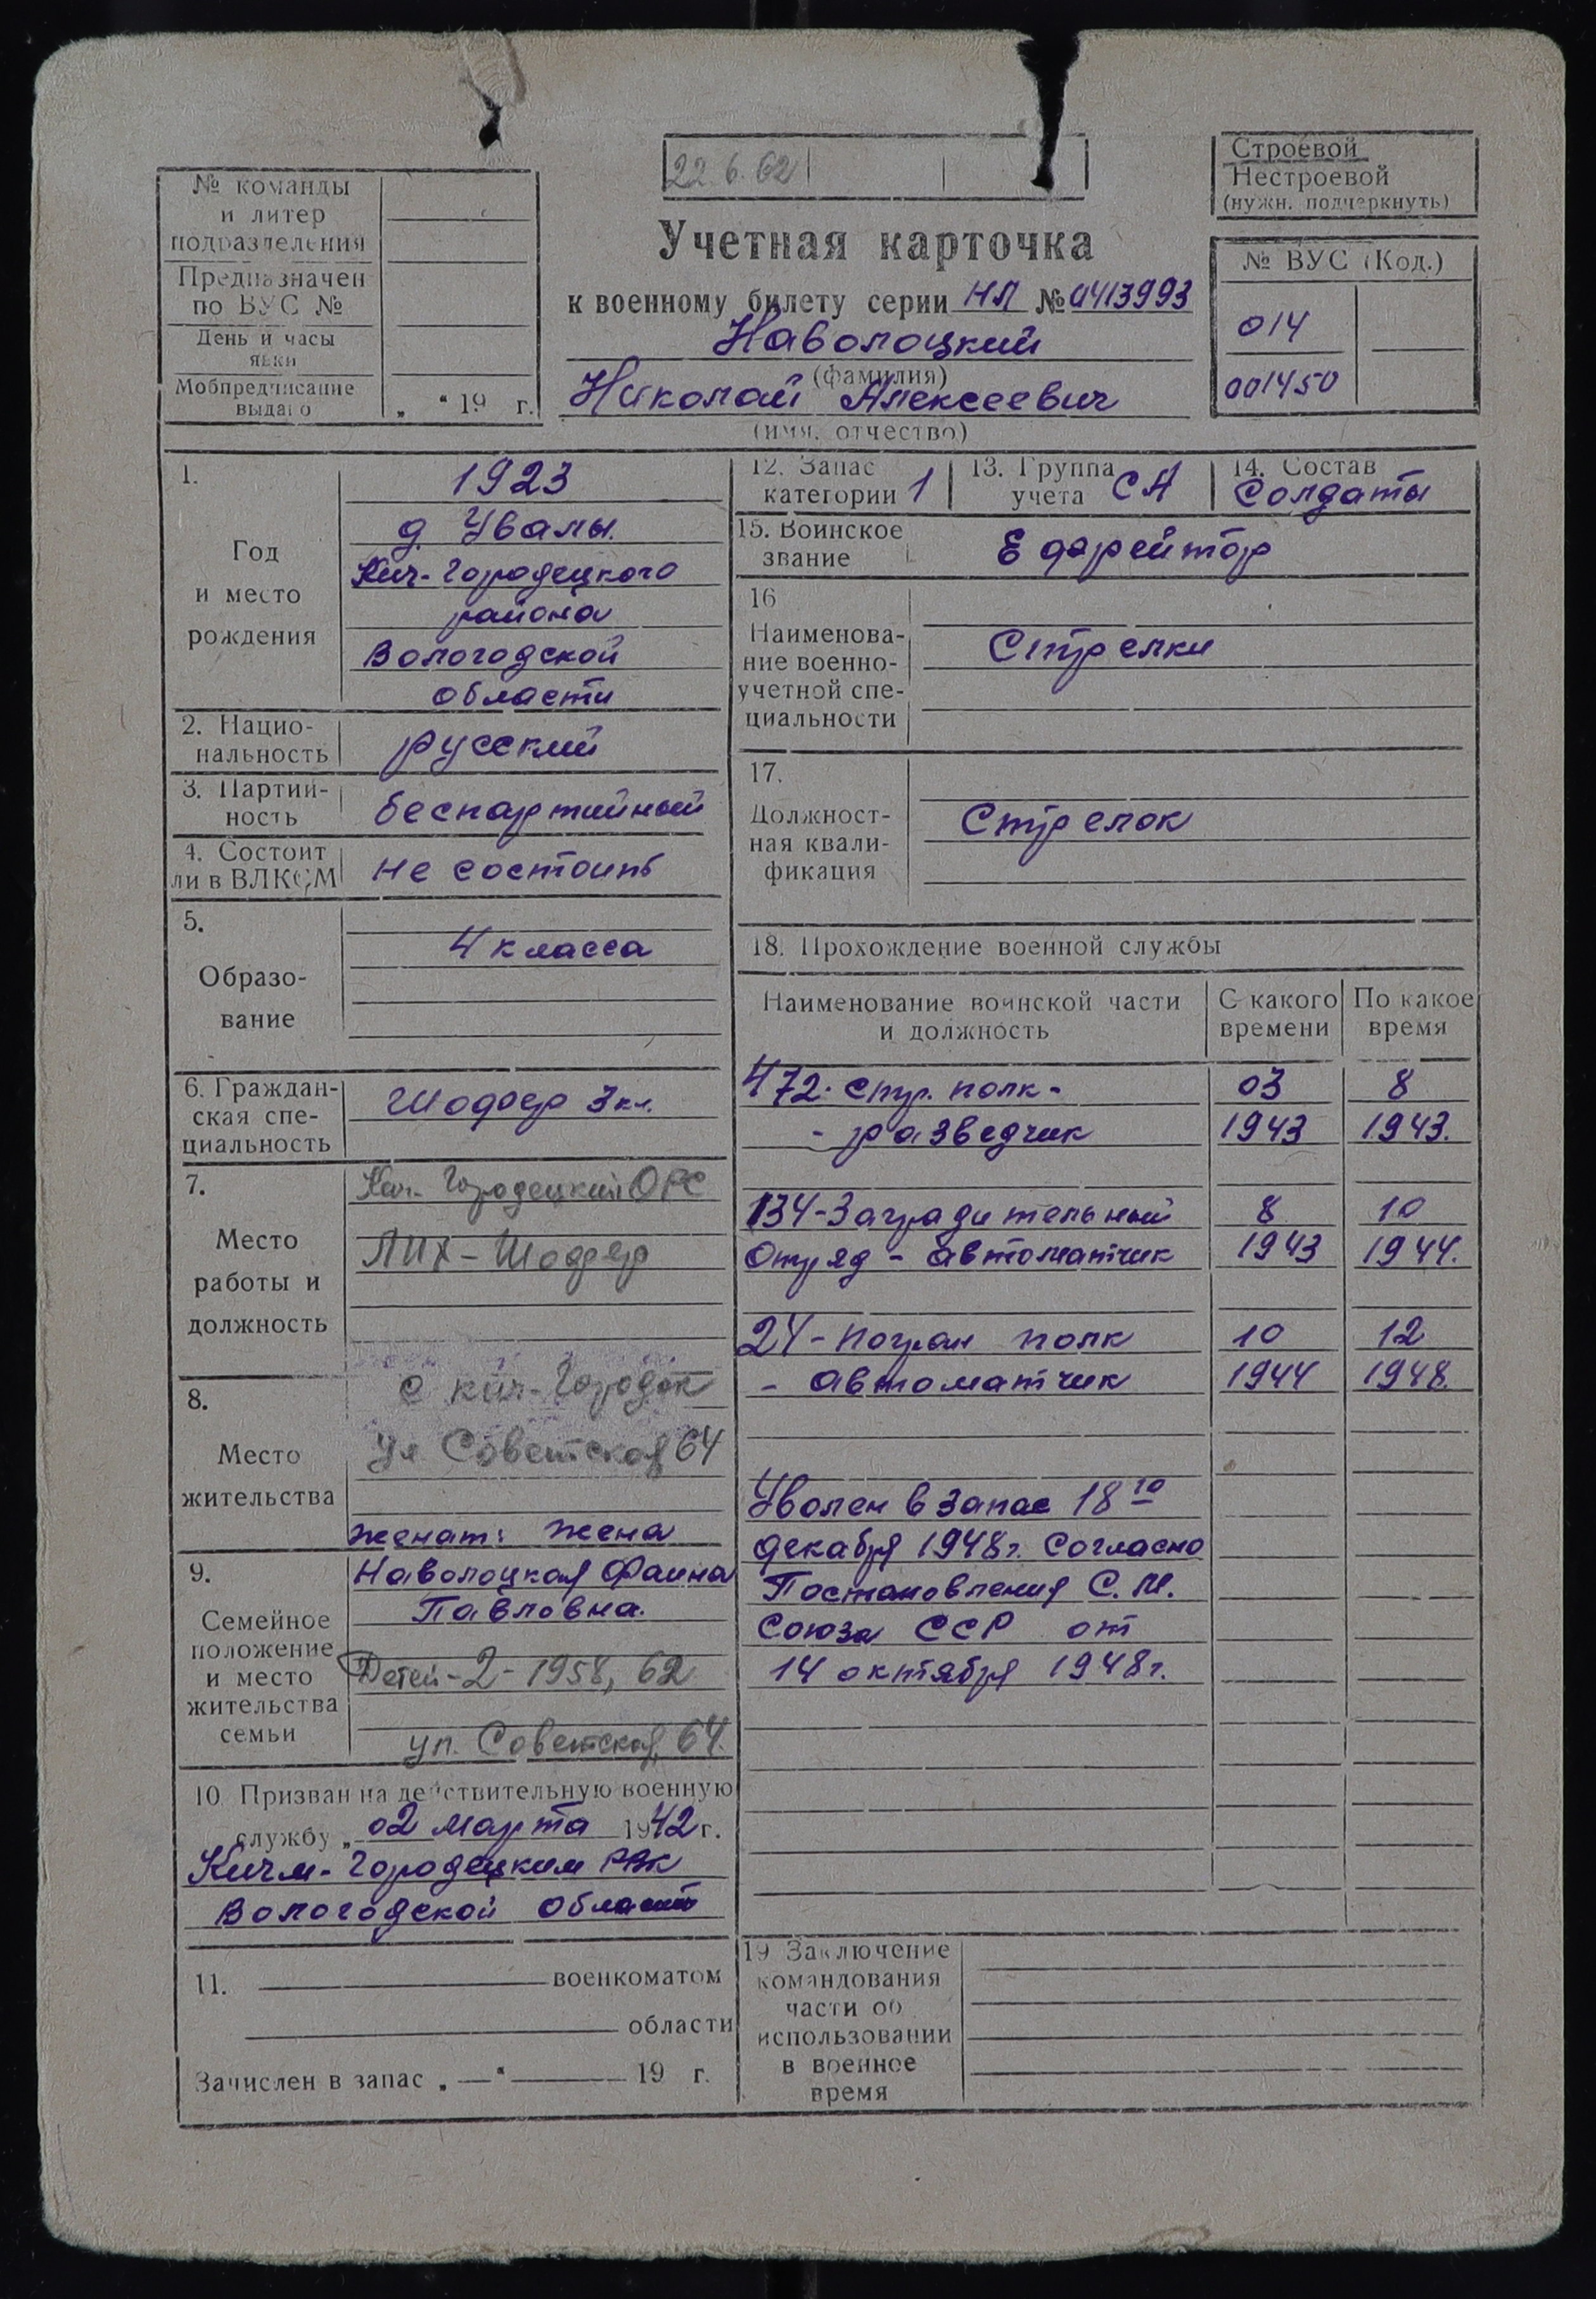 22.6.62
Строевой
Нестроевой
(нужн. подчеркнуть)
№ команды
и литер
подразделения
Предназначен
по ВУС №
День и часы
явки
Мобпредписание
выдано „ “ 19 г.
Учетная карточка
к военному билету серии НЛ № 0413993
Наволоцкий
(фамилия)
Николай Алексеевич
(имя, отчество)
№ ВУС (Код.)
014
001450
1.
Год
и место
рождения
1923
д. Увалы.
Кич-Городецкого
района
Вологодской
области
2. Нацио-
нальность
русский
3. Партий-
ность
беспартийный
4. Состоит
ли в ВЛКСМ
не состоит
5.
Образо-
вание
4 класса
6. Граждан-
ская спе-
циальность
Шофер 3 кл.
7.
Место
работы и
должность
Кич-Городецкий ОРС
ЛПХ - Шофер
8.
Место
жительства
с Кич-Городок
ул Советская 64
женат: жена
9.
Семейное
положение
и место
жительства
семьи
Наволоцкая Фаина
Павловна.
Детей-2-1958, 62
ул. Советская, 64.
10. Призван на действительную военную
службу „ 02 марта 1942 г.
Кичм-Городецким РВК
Вологодской област
11. военкоматом
области
Зачислен в запас „ — “ 19 г.
12. Запас
категории 1
13. Группа
учета СА
14. Состав
Солдаты
15. Воинское
звание
Ефрейтор
16
Наименова-
ние военно-
учетной спе-
циальности
Стрелки
17.
Должност-
ная квали-
фикация
Стрелок
18. Прохождение военной службы
Наименование воинской части
и должность
С какого
времени
По какое
время
472. стр. полк - 03 8
- разведчик 1943 1943.
134-Заградительный 8 10
Отряд - автоматчик 1943 1944.
24-погран полк 10 12
- автоматчик 1944 1948.
Уволен в запас 18го
декабря 1948г. Согласно
Постановления С.М.
Союза ССР от
14 октября 1948г.
19 Заключение
командования
части об
использовании
в военное
время